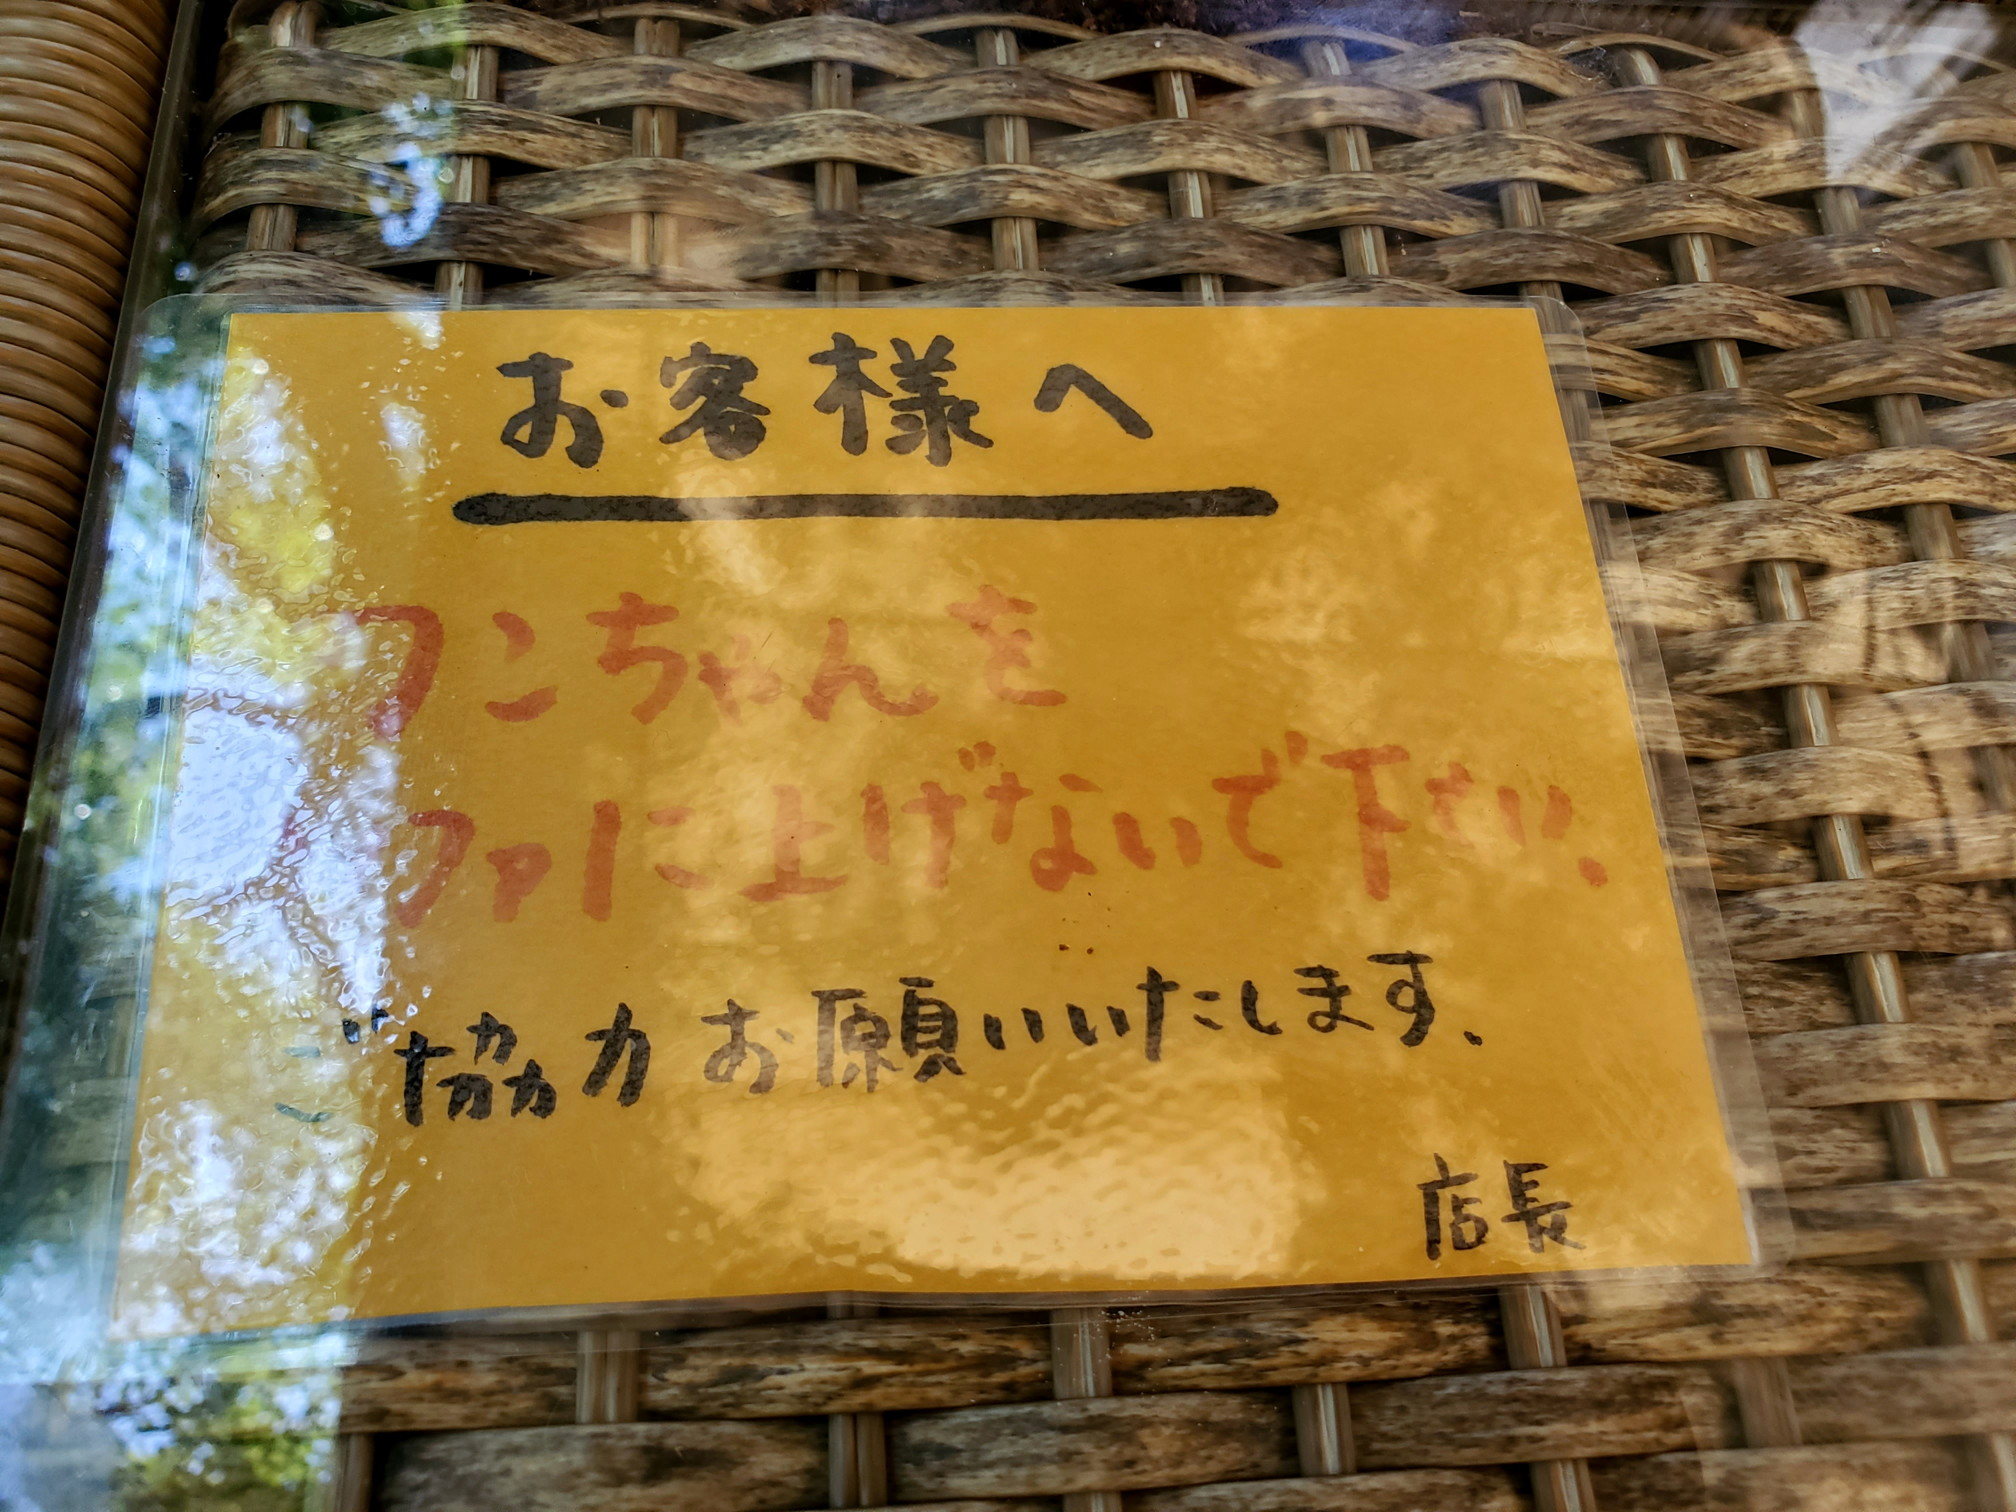 お客様へ
ワンちゃんを
ソファーに上げないで下さい.
ご協力お願いいたします.
店長